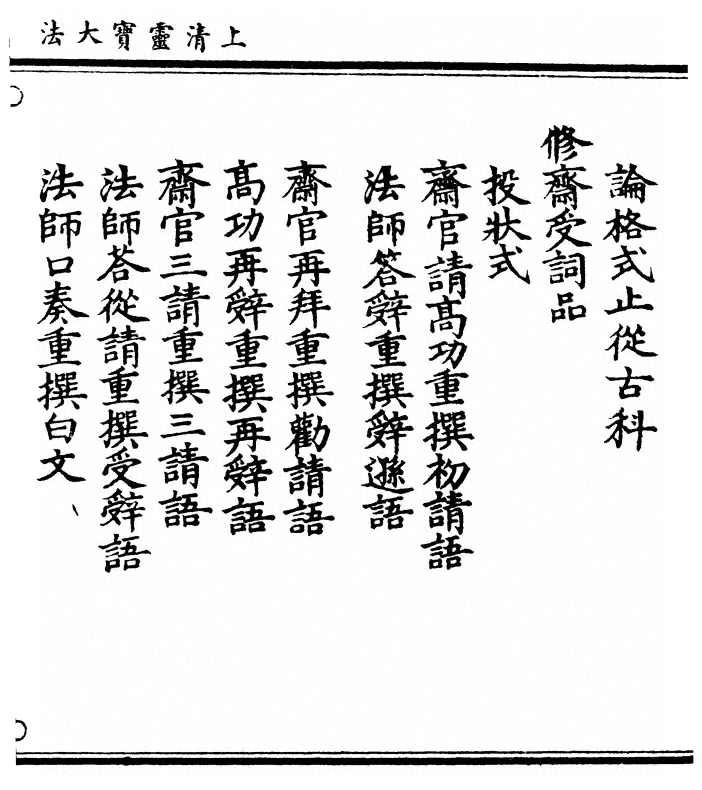 上清靈寶大法
論格式止從古科
修齋受詞品
投狀式
齋官請高功重撰初請語
法師答辭重撰辭遜語
齋官再拜重撰勸請語
高功再辭重撰再辭語
齋官三請重撰三請語
法師荅從請重撰受辭語
法師口奏重撰白文